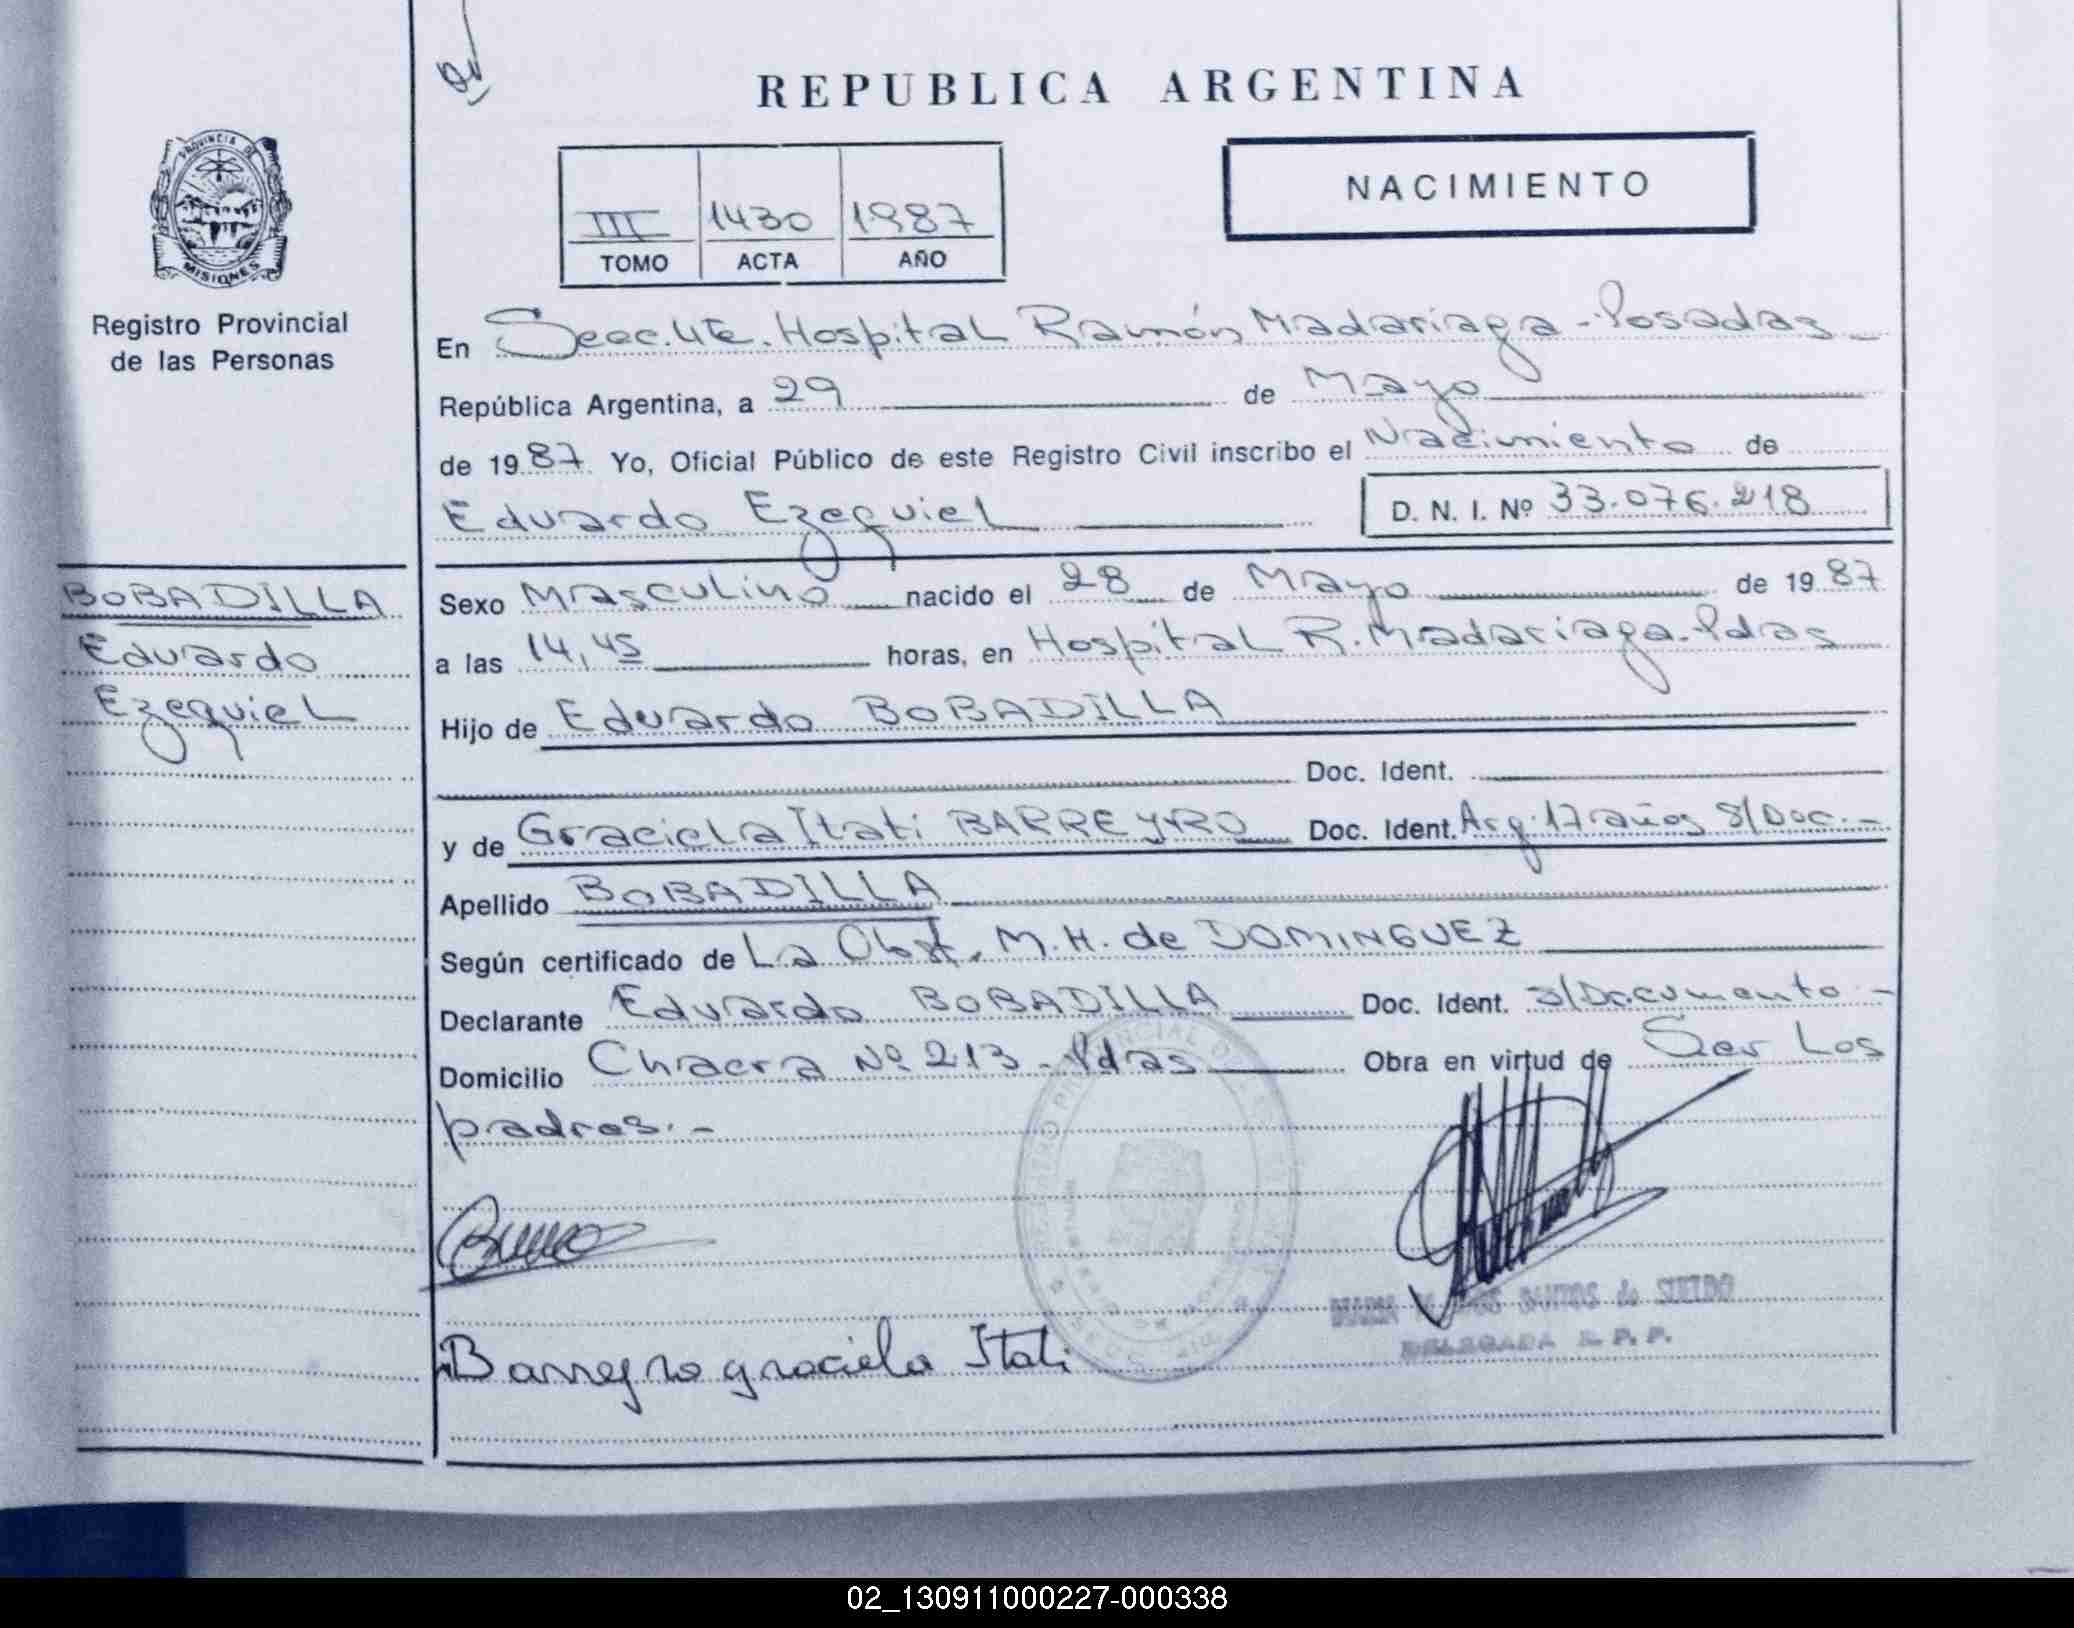 REPUBLICA ARGENTINA
NACIMIENTO
III 1430 1987
TOMO ACTA AÑO
PROVINCIA DE
MISIONES
Registro Provincial
de las Personas
En Secc. Hospital Ramón Madariaga - Posadas
República Argentina, a 29 de Mayo
de 1987 Yo, Oficial Público de este Registro Civil inscribo el Nacimiento de
Eduardo Ezequiel D. N. I. Nº 33.076.218
BOBADILLA
Eduardo
Ezequiel
Sexo Masculino nacido el 28 de Mayo de 1987
a las 14,45 horas, en Hospital R. Madariaga - Pdas
Hijo de Eduardo BOBADILLA
Doc. Ident.
y de Graciela Itati BARREYRO Doc. Ident. Arg. 17 años S/Doc.-
Apellido BOBADILLA
Según certificado de La Obst. M.H. de DOMINGUEZ
Declarante Eduardo BOBADILLA Doc. Ident. S/Documento -
Domicilio Chacra Nº 213 - Pdas Obra en virtud de Ser Los
padres.-
de SUELDO
DELEGADA R. P. P.
Barreyro graciela Itati
02_130911000227-000338